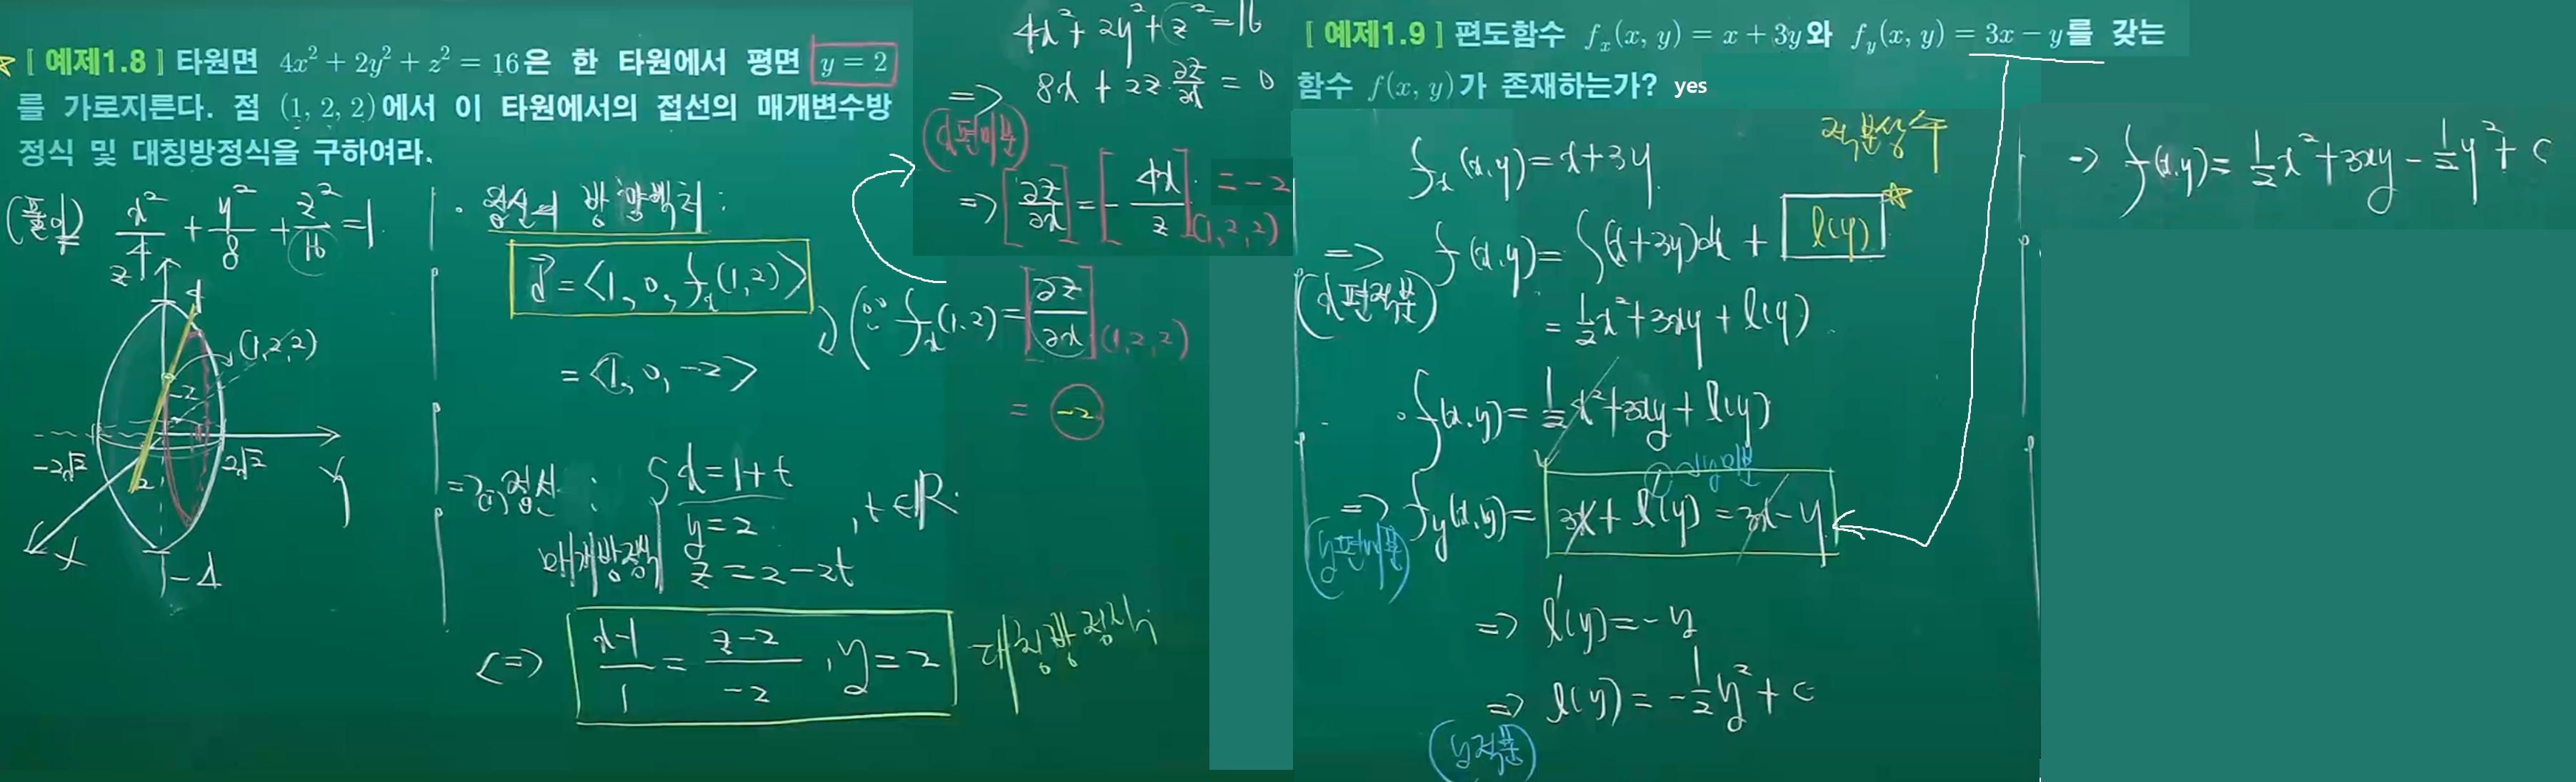 [ 예제1.8 ] 타원면 4x² + 2y² + z² = 16은 한 타원에서 평면 y = 2
를 가로지른다. 점 (1, 2, 2)에서 이 타원에서의 접선의 매개변수방
정식 및 대칭방정식을 구하여라.
(풀이) x²/4 + y²/8 + z²/16 = 1
z
4
(1,2,2)
2
-2√2
2√2
y
2
x
-4
· 접선의 방향벡터 :
d⃗ = <1, 0, fₓ(1,2)>
= <1, 0, -2>
(∵ fₓ(1,2) = [∂z/∂x](1,2,2)
= -2
4x² + 2y² + z² = 16
=> 8x + 2z·∂z/∂x = 0
(x편미분)
=> [∂z/∂x] = [-4x/z](1,2,2) = -2
=> 접선 :
매개방정식
x = 1 + t
y = 2 , t ∈ R.
z = 2 - 2t
<=> (x-1)/1 = (z-2)/-2 , y = 2 대칭방정식
[ 예제1.9 ] 편도함수 fₓ(x, y) = x + 3y와 f_y(x, y) = 3x − y를 갖는
함수 f(x, y)가 존재하는가? yes
적분상수
fₓ(x,y) = x + 3y
=> f(x,y) = ∫(x+3y)dx + l(y)
(x편적분)
= ½x² + 3xy + l(y)
· f(x,y) = ½x² + 3xy + l(y)
y미분
=> f_y(x,y) = 3x + l'(y) = 3x - y
(y편미분)
=> l'(y) = -y
=> l(y) = -½y² + c
(y적분)
=> f(x,y) = ½x² + 3xy - ½y² + c